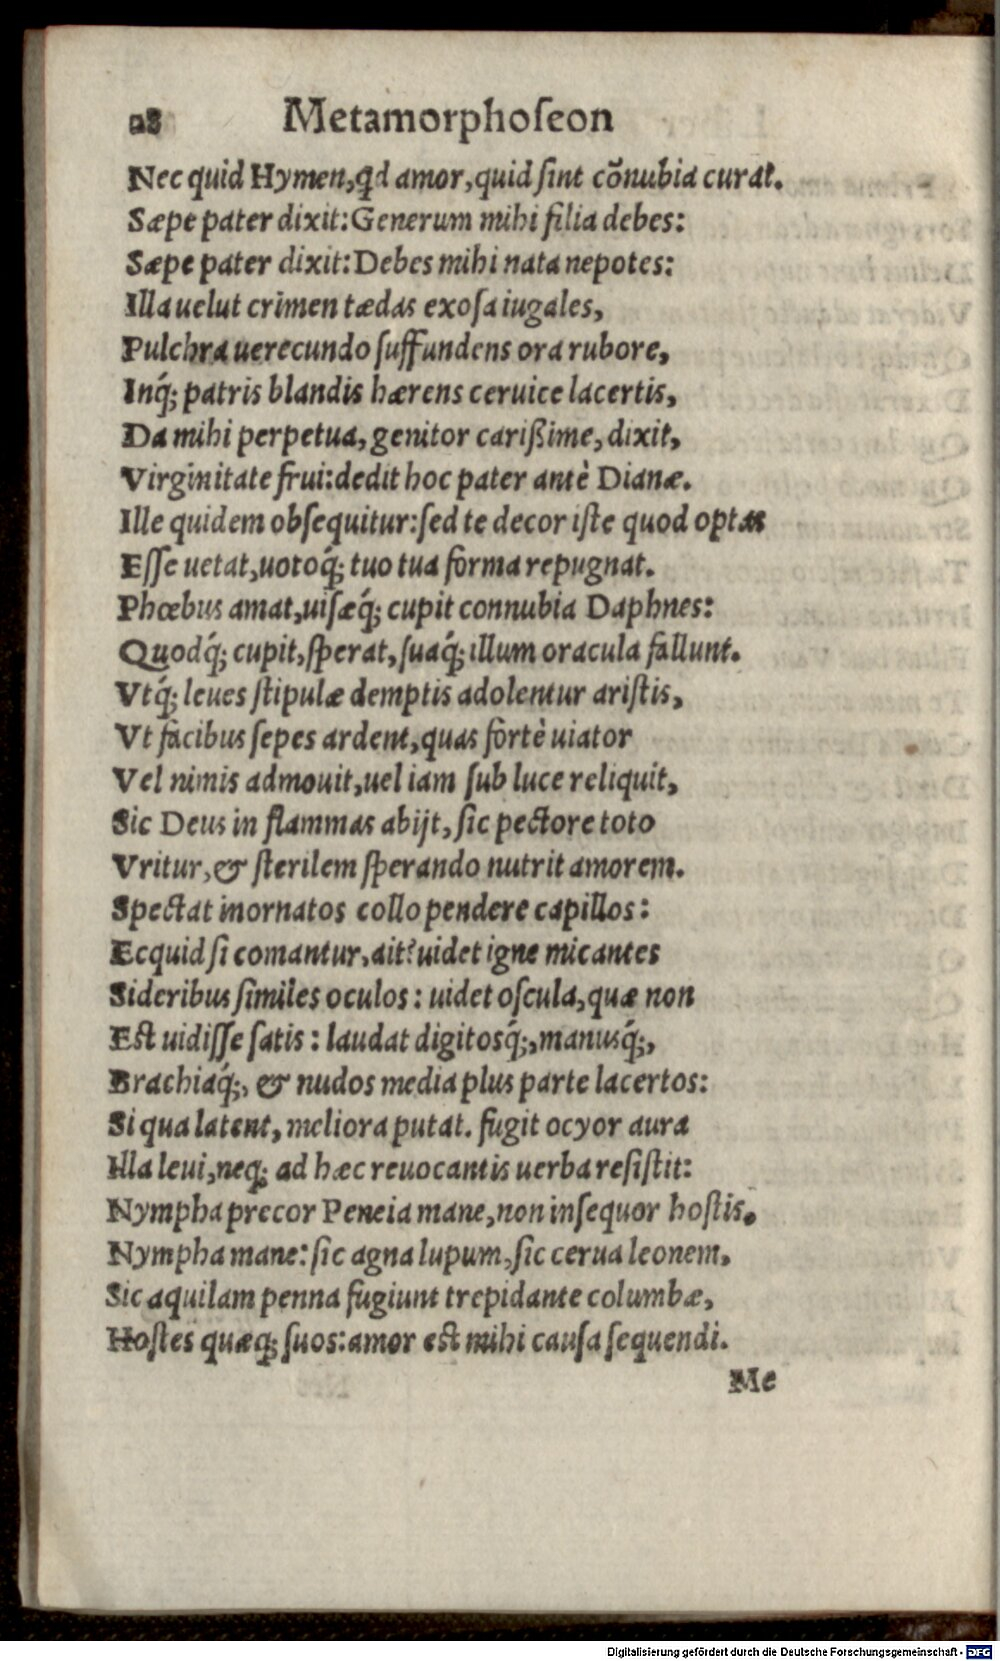 28 Metamorphoſeon
Nec quid Hymen, qd amor, quid ſint cõnubia curat.
Sæpe pater dixit: Generum mihi filia debes:
Sæpe pater dixit: Debes mihi nata nepotes:
Illa uelut crimen tædas exoſa iugales,
Pulchra uerecundo ſuffundens ora rubore,
Inq́; patris blandis hærens ceruice lacertis,
Da mihi perpetua, genitor carißime, dixit,
Virginitate frui: dedit hoc pater antè Dianæ.
Ille quidem obſequitur: ſed te decor iſte quod optas
Eſſe uetat, uotoq́; tuo tua forma repugnat.
Phœbus amat, uiſæq́; cupit connubia Daphnes:
Quodq́; cupit, ſperat, ſuaq́; illum oracula fallunt.
Vtq́; leues ſtipulæ demptis adolentur ariſtis,
Vt facibus ſepes ardent, quas fortè uiator
Vel nimis admouit, uel iam ſub luce reliquit,
Sic Deus in flammas abijt, ſic pectore toto
Vritur, & ſterilem ſperando nutrit amorem.
Spectat inornatos collo pendere capillos:
Ecquid ſi comantur, ait? uidet igne micantes
Sideribus ſimiles oculos: uidet oſcula, quæ non
Eſt uidiſſe ſatis: laudat digitosq́;, manusq́;,
Brachiaq́;, & nudos media plus parte lacertos:
Si qua latent, meliora putat. fugit ocyor aura
Illa leui, neq; ad hæc reuocantis uerba reſiſtit:
Nympha precor Peneia mane, non inſequor hoſtis.
Nympha mane: ſic agna lupum, ſic cerua leonem,
Sic aquilam penna fugiunt trepidante columbæ,
Hoſtes quæq; ſuos: amor eſt mihi cauſa ſequendi.
Me
Digitalisierung gefördert durch die Deutsche Forschungsgemeinschaft - DFG